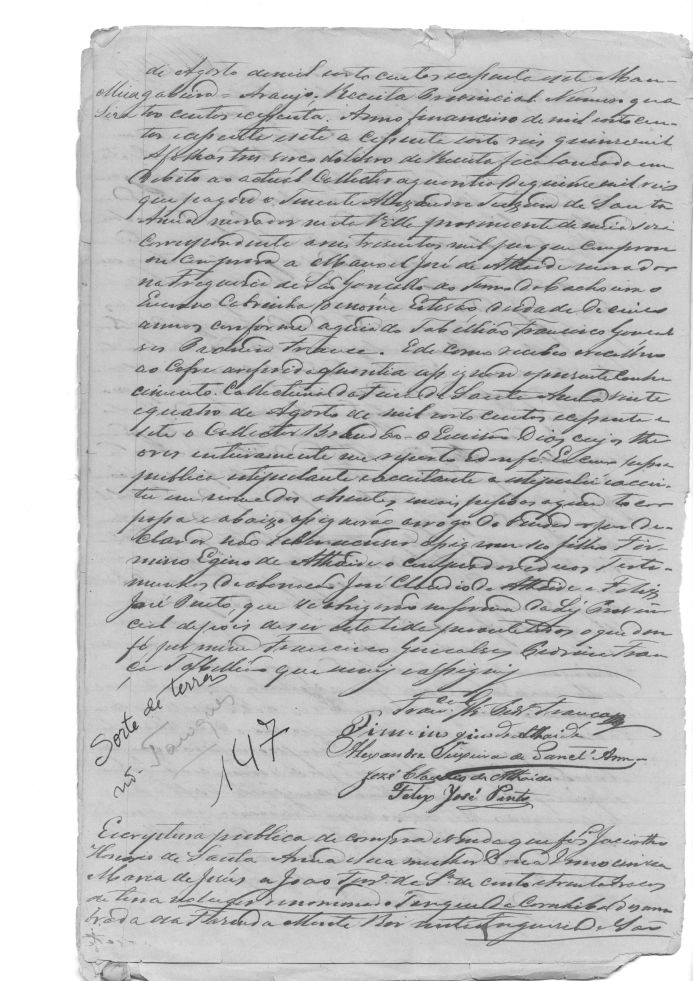 de Agosto de mil oito centos e sessenta e sete Man-
gabeira = Araujo. Receita Provincial Numero qua
tro centos e sessenta. Anno financeiro de mil oito cen-
tos e sessenta e sete a sessenta e oito reis quinze mil
A folhas tres do livro de Receita fica lançado em
debito ao actual Collector a quantia de quinze mil reis
que pagou o Tenente Alexandre Teixeira de Santa
Anna morador nesta Villa proveniente de meia siza
correspondente a reis tresentos mil por que comprou
a Manoel José de Athaide morador
na Freguesia de São Gonçalo
Escravo Cabrinha de nome Estevão de idade de cinco
annos conforme a guia do Tabellião Francisco Gonçal
ves Pedreira França. E de como recebeo e recolheo
ao Cofre a referida quantia assignou o presente conhe
cimento. Collectoria da Feira de Santa Anna vinte
e quatro de Agosto de mil oito centos e sessenta e
sete o Collector Brandão o Escrivão Dias cujos the
ores inteiramente me reporto e dou fé. Eu como pessoa
publica estipulante e acceitante o estipulei e accei-
tei em nome dos absentes mais pessoas a quem tocar
possa e abaixo assignarão a rogo do Vendedor por de-
clarar não saber escrever assignou seo filho Fir-
mino Egino de Athaide o comprador e duas Teste-
munhas de abonação José Claudio de Athaide e Felix
José Pinto, que se obrigarão na forma da Ley Provin
cial depois de ser esta lida perante todos o que dou
fé por mim Francisco Gonçalves Pedreira Fran
ça Tabellião que escrevi e assignei
Franco. Glz. Pedra. França
Firmino gino de Athaide
Alexandre Teixeira de Sanct' Anna
José Claudio de Athaide
Felix José Pinto
Sorte de terras
no- Tanques
147
Escriptura publica de compra e venda que fás Jacintho
Honorio de Santa Anna e sua mulher Dona Innocencia
Maria de Jesús a João Ferra. de Sa. de cento e trinta braças
de terra no lugar denominado Tanque da Comdiba desmem
brada da Fazenda Monte Bôi nesta Freguesia de São